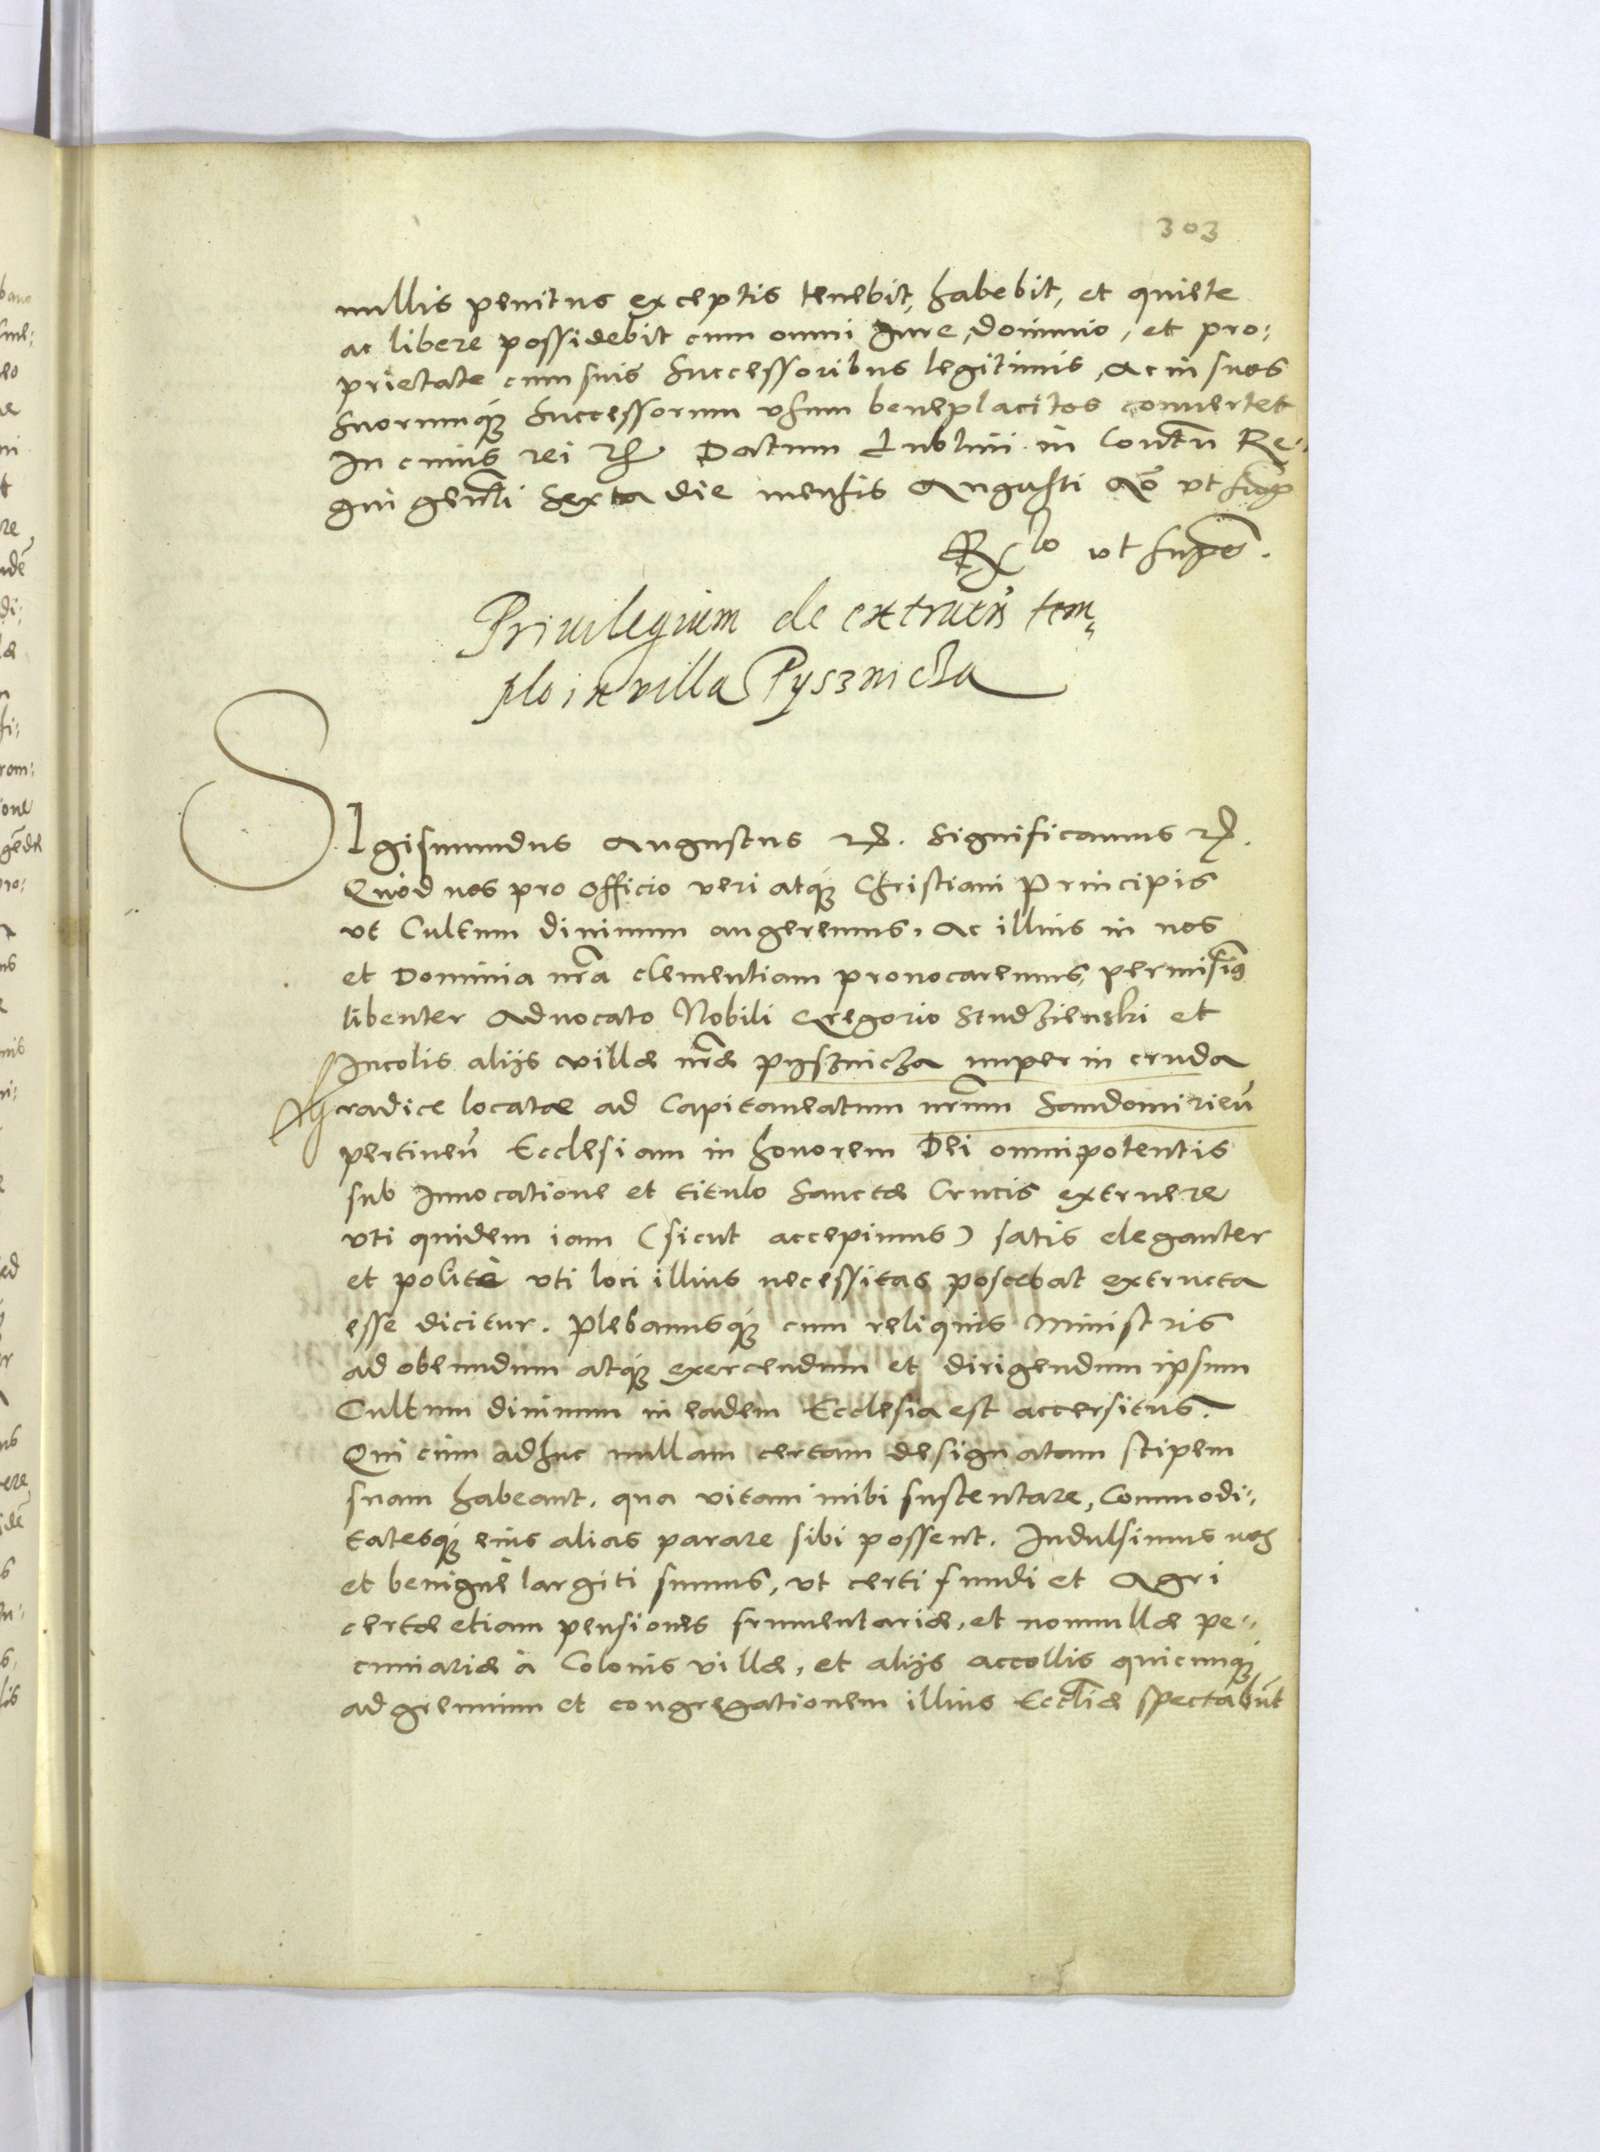 303
nullis penitus exceptis tenebit, habebit, et quiete
ac libere possidebit cum omni iure, dominio, et pro:
prietate cum suis successoribus legitimis, ac in suos
suorumq́ue successorum vsum beneplacitos conuertet
In cuius rei etc Datum Lublini in Contu Re-
gni genli sexta die mensis Augusti Ao vt sup
Rlo vt supra.
Priuilegium de extruen tem„
plo in villa Pysznicza
SIgismundus Augustus etc. Significamus etc.
Quod nos pro officio veri atq́ue Christiani Principis
vt Cultum diuinum augeremus, ac illius in nos
et Dominia nra clementiam prouocaremus, permisimus
libenter Aduocato Nobili Gregorio Studzienski et
Incolis alijs villæ nræ Pysznicza nuper in cruda
radice locatæ ad Capitaneatum nrum Sandomirien
pertinen Ecclesiam in honorem Dei omnipotentis
sub Innocatione et titulo Sanctæ Crucis extruere
vti quidem iam (sicut accepimus) satis eleganter
et politè vti loci illius necessitas poscebat extructa
esse dicitur. Plebanusq́ue cum reliquis Ministris
ad obeundum atq́ue exercendum et dirigendum ipsum
Cultum diuinum in eadem Ecclesia est accersitus.
Qui cùm adhuc nullam certam designatam stipem
suam habeant, qua vitam inibi sustentare, Commodi-
tatesq́ue eius alias parare sibi possent. Indulsimus nos
et benignè largiti sumus, vt certi fundi et Agri
certæ etiam pensiones frumentariæ, et nonnullæ pe-
cuniariæ à Colonis villæ, et alijs accollis quicunq́ue
ad gremium et congregationem illius Eccliæ spectabunt